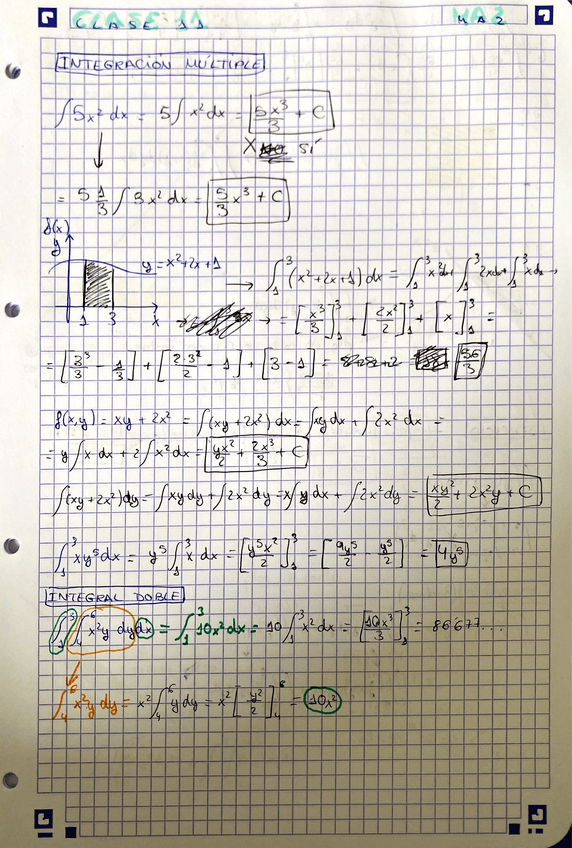 CLASE 11 MA2
INTEGRACIÓN MÚLTIPLE
∫ 5x² dx = 5 ∫ x² dx = 5x³/3 + C
X SÍ
= 5 1/3 ∫ 3x² dx = 5/3 x³ + C
f(x)
y
y = x² + 2x + 1 → ∫₁³ (x² + 2x + 1) dx = ∫₁³ x² dx + ∫₁³ 2x dx + ∫₁³ x dx →
1 3 x → → = [x³/3]₁³ + [2x²/2]₁³ + [x]₁³ =
= [3³/3 - 1/3] + [2·3²/2 - 1] + [3 - 1] = 56/3
f(x,y) = xy + 2x² = ∫(xy + 2x²) dx = ∫xy dx + ∫2x² dx =
= y ∫ x dx + 2 ∫ x² dx = yx²/2 + 2x³/3 + C
∫(xy + 2x²) dy = ∫ xy dy + ∫ 2x² dy = x∫ y dx + ∫ 2x² dy = xy²/2 + 2x²y + C
∫₁³ xy⁵ dx = y⁵ ∫₁³ x dx = [y⁵x²/2]₁³ = [9y⁵/2 - y⁵/2] = 4y⁵
INTEGRAL DOBLE
∫₁³ ∫₄⁶ x²y dy dx = ∫₁³ 10x² dx = 10 ∫₁³ x² dx = [10x³/3]₁³ = 86'677...
∫₄⁶ x²y dy = x² ∫₄⁶ y dy = x² [y²/2]₄⁶ = 10x²